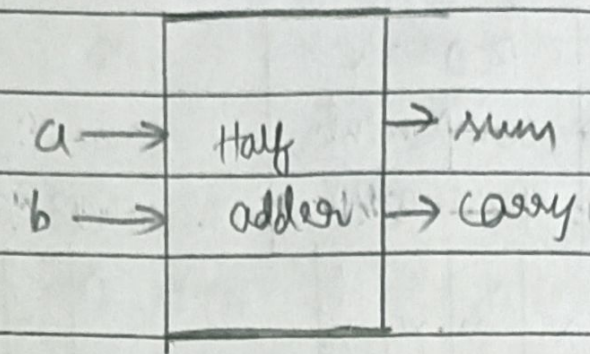 a → Half → sum
b → adder → carry